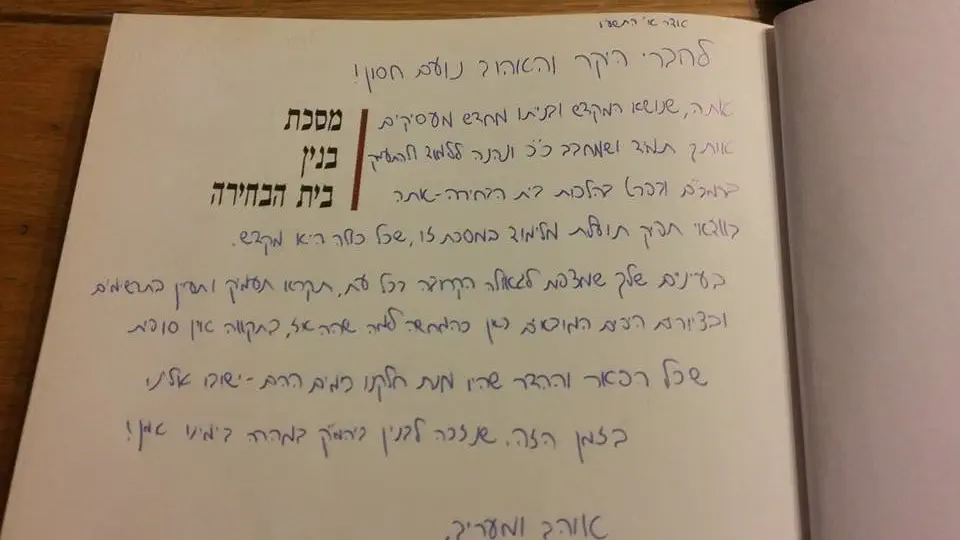 אדר א' התשע"ו
לחברי היקר והאהוב נועם חסון!
אתה, שנושא המקדש ובנייתו מחדש מעסיקים
אותך תמיד ושמחבב כ"כ ונהנה ללמוד ולהעמיק
ברמב"ם ובפרט בהלכות בית הבחירה - אתה
בוודאי תפיק תועלת מלימוד במסכת זו, שכל כולה היא מקדש.
בעינים שלך שמצפות לגאולה הקרובה בכל עת, תקרא תעמיק ותעיין בתרשימים
ובציורים היפים המובאים כאן כהמחשה למה שהיה אז, בתקווה אין סופית
שכל הפאר וההדר שהיו מנת חלקנו בימים ההם - ישובו אלינו
בזמן הזה. שנזכה לבנין ביהמ"ק במהרה בימינו אמן!
אוהב ומעריך,
מסכת
בנין
בית הבחירה